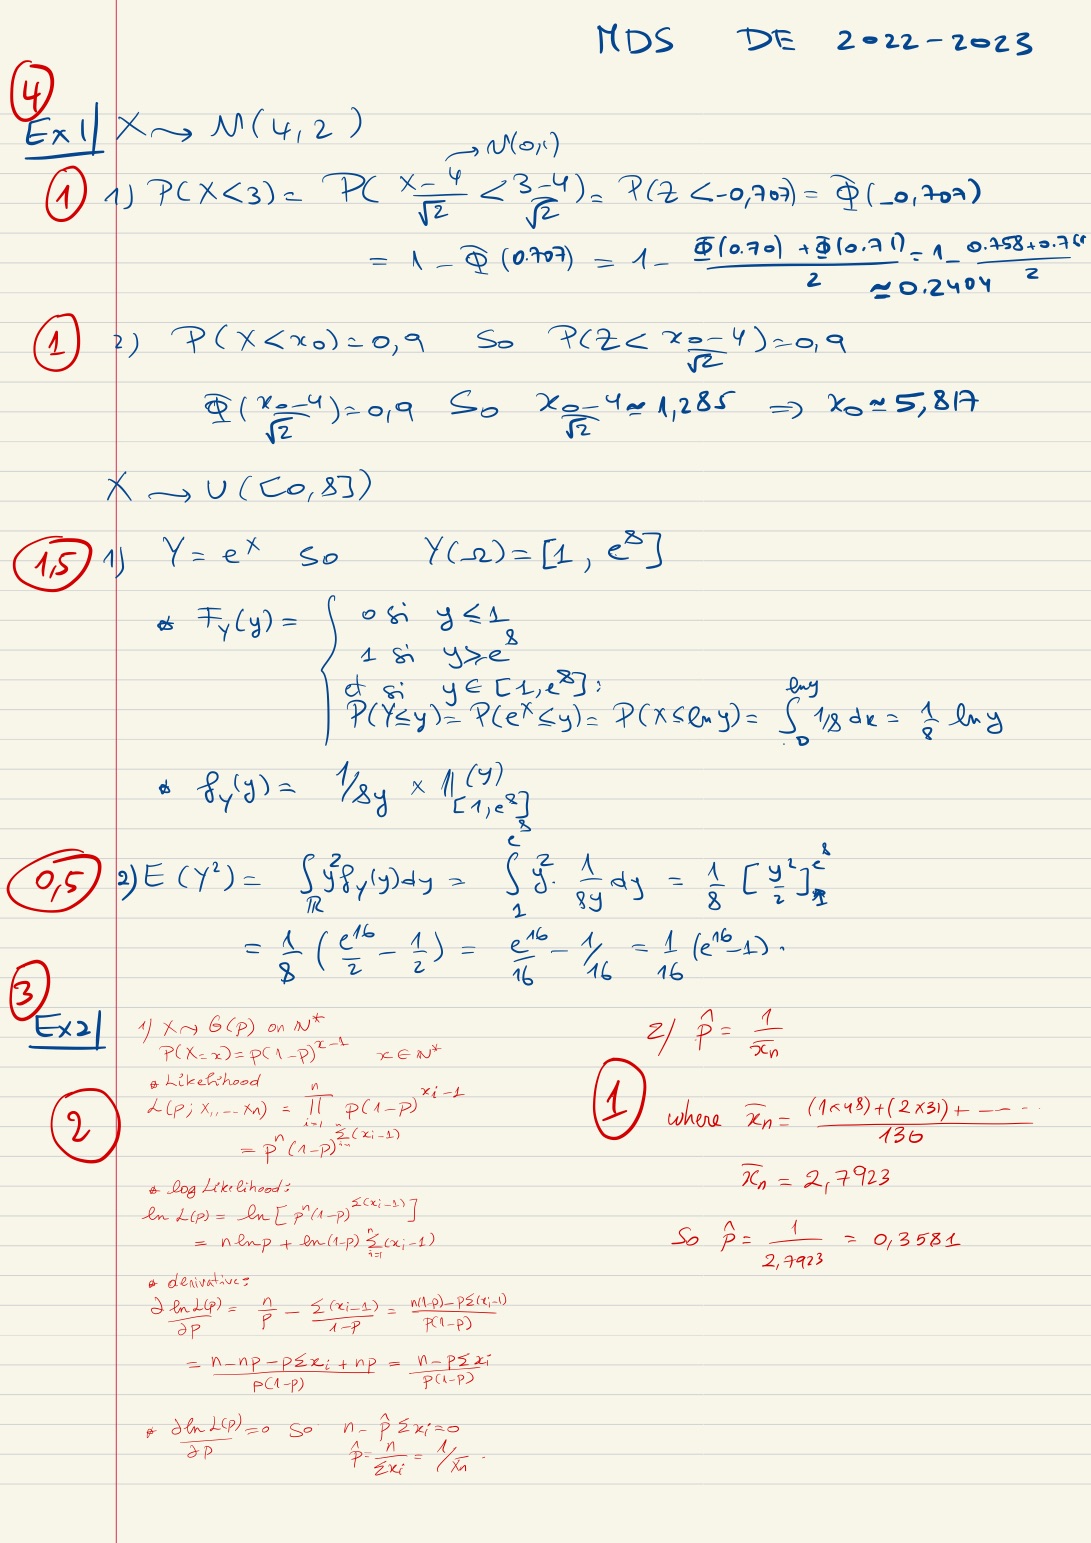 MDS DE 2022-2023
4
Ex1/ X ⇝ N(4,2)
→ N(0,1)
1 1) P(X<3) = P( X-4/√2 < 3-4/√2 ) = P(Z<-0,707) = Φ(-0,707)
= 1 - Φ(0.707) = 1 - Φ(0.70) + Φ(0.71)/2 = 1 - 0.758+0.761/2
≃ 0.2404
1 2) P(X<x0)=0,9 So P(Z< x0-4/√2)=0,9
Φ(x0-4/√2)=0,9 So x0-4/√2 ≃ 1,285 ⇒ x0 ≃ 5,817
X ⇝ U([0,8])
1,5 1) Y = e^X so Y(Ω) = [1, e^8]
* F_Y(y) = { 0 si y ≤ 1
1 si y ≥ e^8
et si y ∈ [1,e^8]:
P(Y≤y) = P(e^X≤y) = P(X≤ln y) = ∫_0^{ln y} 1/8 dx = 1/8 ln y
* f_Y(y) = 1/8y × 𝟙_[1,e^8](y)
0,5 2) E(Y²) = ∫_ℝ y² f_Y(y)dy = ∫_1^{e^8} y². 1/8y dy = 1/8 [y²/2]_1^{e^8}
= 1/8 (e^16/2 - 1/2) = e^16/16 - 1/16 = 1/16 (e^16-1).
3
Ex2/
2
1) X ⇝ G(p) on ℕ*
P(X=x) = p(1-p)^{x-1} x ∈ ℕ*
* Likelihood
L(p; x1,... xn) = ∏_{i=1}^n p(1-p)^{xi-1}
= p^n (1-p)^{Σ_{i=1}^n (xi-1)}
* log Likelihood:
ln L(p) = ln [p^n(1-p)^{Σ(xi-1)}]
= n ln p + ln(1-p) Σ_{i=1}^n (xi-1)
* derivative:
∂ ln L(p)/∂p = n/p - Σ(xi-1)/1-p = n(1-p)-pΣ(xi-1)/p(1-p)
= n-np-pΣxi+np/p(1-p) = n-pΣxi/p(1-p)
* ∂ ln L(p)/∂p = 0 So n - p̂ Σxi = 0
p̂ = n/Σxi = 1/x̄n.
2/ p̂ = 1/x̄n
1
where x̄n = (1×48)+(2×31)+ -----/130
x̄n = 2,7923
So p̂ = 1/2,7923 = 0,3581